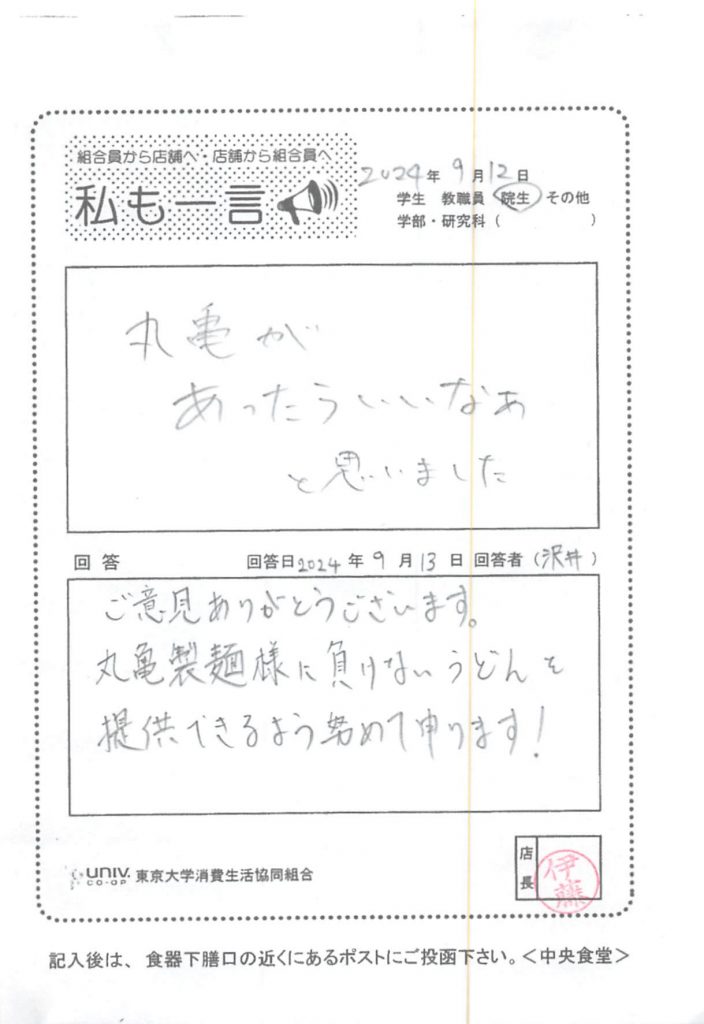 組合員から店舗へ・店舗から組合員へ
私も一言
2024年 9月12日
学生 教職員 院生 その他
学部・研究科（ ）
丸亀が
あったらいいなぁ
と思いました
回答 回答日2024年9月13日 回答者（沢井）
ご意見ありがとうございます。
丸亀製麺様に負けないうどんを
提供できるよう努めて申ります!
店長
伊藤
UNIV. CO-OP 東京大学消費生活協同組合
記入後は、食器下膳口の近くにあるポストにご投函下さい。＜中央食堂＞